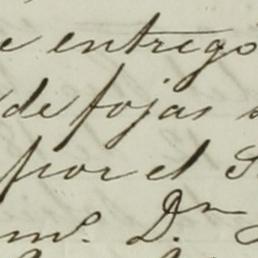 e entrego
de fojas
por el S
mo. Dn